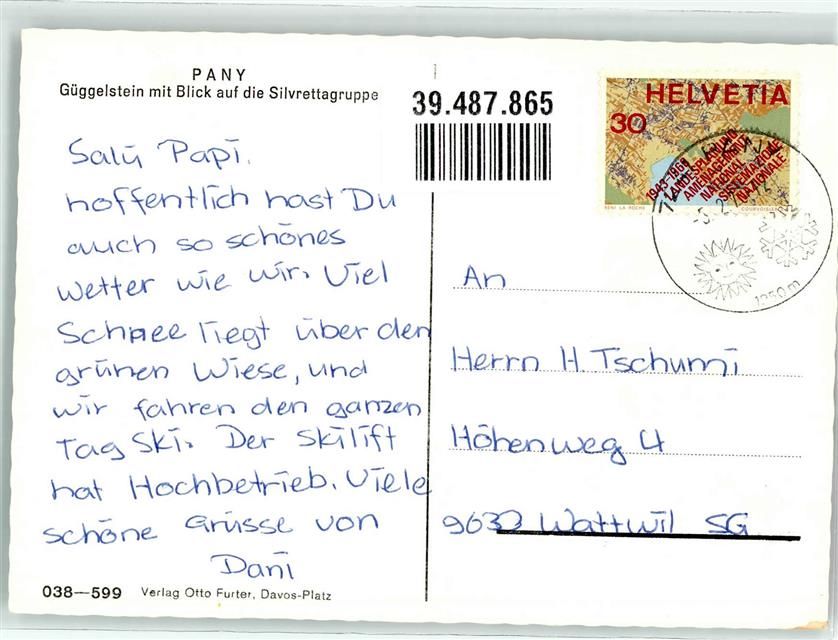 PANY
Güggelstein mit Blick auf die Silvrettagruppe
Salü Papi.
hoffentlich hast Du
auch so schönes
Wetter wie wir. Viel
Schnee liegt über den
grünen Wiese, und
wir fahren den ganzen
Tag Ski. Der Skilift
hat Hochbetrieb. Viele
schöne Grüsse von
Dani
038—599 Verlag Otto Furter, Davos-Platz
39.487.865
HELVETIA
30
1943-1968
LANDESPLANUNG
AMENAGEMENT
NATIONAL
SISTEMAZIONE
NAZIONALE
RENE LA ROCHE COURVOISIER
1250 m
An
Herrn H. Tschumi
Höhenweg 4
9630 Wattwil SG